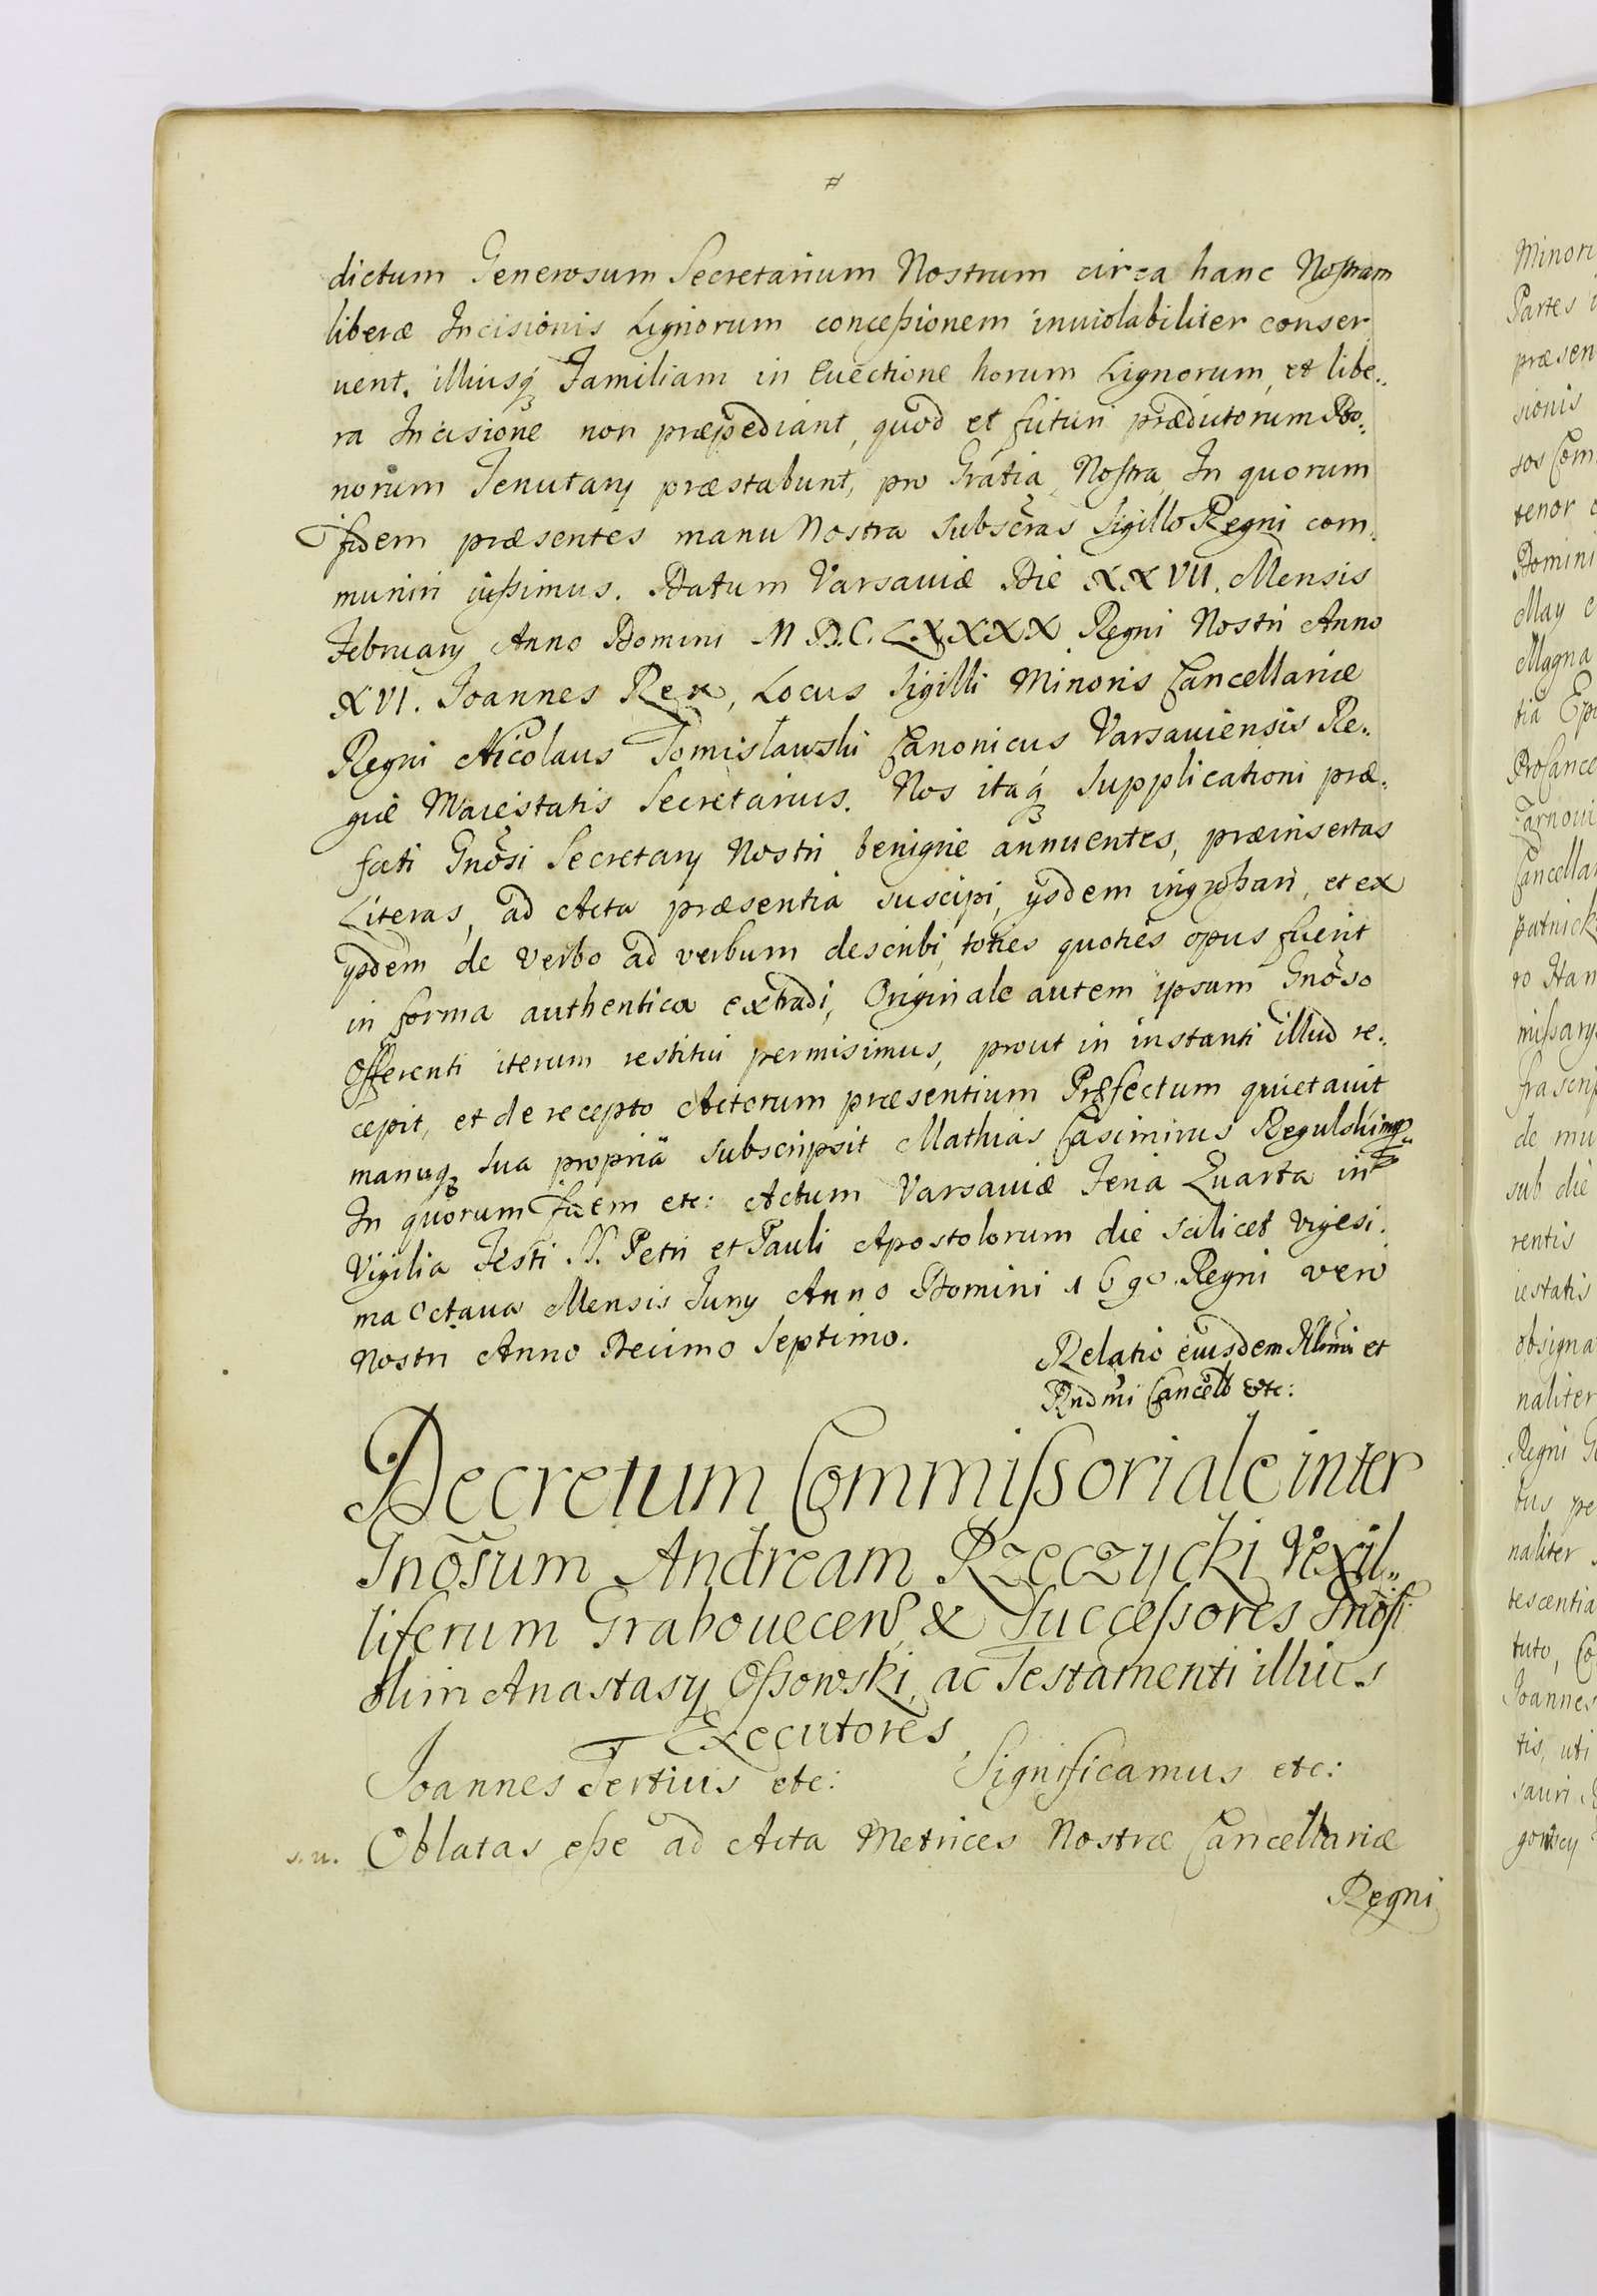 dictum Generosum Secretarium Nostrum circa hanc Nostram
liberæ Incisionis Lignorum concessionem inuiolabiliter conser
uent. illiusq́ Familiam in Euectione horum Lignorum, et libe..
ra Incisione non præpediant, quod et futuri prædictorum Bo..
norum Tenutarÿ præstabunt, pro Gratia Nostra, In quorum
fidem præsentes manu Nostra subscras Sigillo Regni com..
muniri iussimus. Datum Varsauiæ Die XXVII. Mensis
Februarÿ Anno Domini M.D.C.LXXXX Regni Nostri Anno
XVI. Joannes Rex, Locus Sigilli Minoris Cancellariæ
Regni Nicolaus Tomisławski Canonicus Varsauiensis Re..
giæ Maiestatis Secretarius. Nos itaq́ Supplicationi præ..
fati Gnõsi Secretarÿ Nostri benigne annuentes, præinsertas
Literas, ad Acta præsentia suscipi, ÿsdem ingrossari, et ex
ÿsdem de verbo ad verbum describi, toties quoties opus fuerit
in forma authentica extradi, Originale autem ipsum Gnõso
Offerenti iterum restitui permisimus, prout in instanti illud re..
cepit, et de recepto Actorum præsentium Præfectum quietauit
manuq́ sua propria subscripsit Mathias Casimirus Regulski mp
In quorum fidem etc: Actum Varsauiæ Feria Quarta in
Vigilia Festi S.S. Petri et Pauli Apostolorum die scilicet vigesi..
ma Octaua Mensis Junÿ Anno Domini 1690. Regni vero
Nostri Anno Decimo Septimo.
Relatio eiusdem Illmi et
Rndmi Cancell etc:
Decretum Commissoriale inter
Gnõsum Andream Rzeczycki Vexil..
liferum Grabouecens, & Successores Gnõsi
olim Anastasÿ Ossowski, ac Testamenti illius
Executores
Joannes Tertius etc: Significamus etc:
s.n. Oblatas esse ad Acta Metrices Nostræ Cancellariæ
Regni
Minori
Partes
præsen
sionis
sos Com
tenor
Domini
May
Magna
tia Epi
ProCance
Tarnoui
Cancella
patnick
missarÿ
frascrip
de mu
sub die
rentis
iestatis
obsigna
naliter
Regni
tus pe
naliter
tescentia
tuto, Co
Joannes
tis, uti
sauri